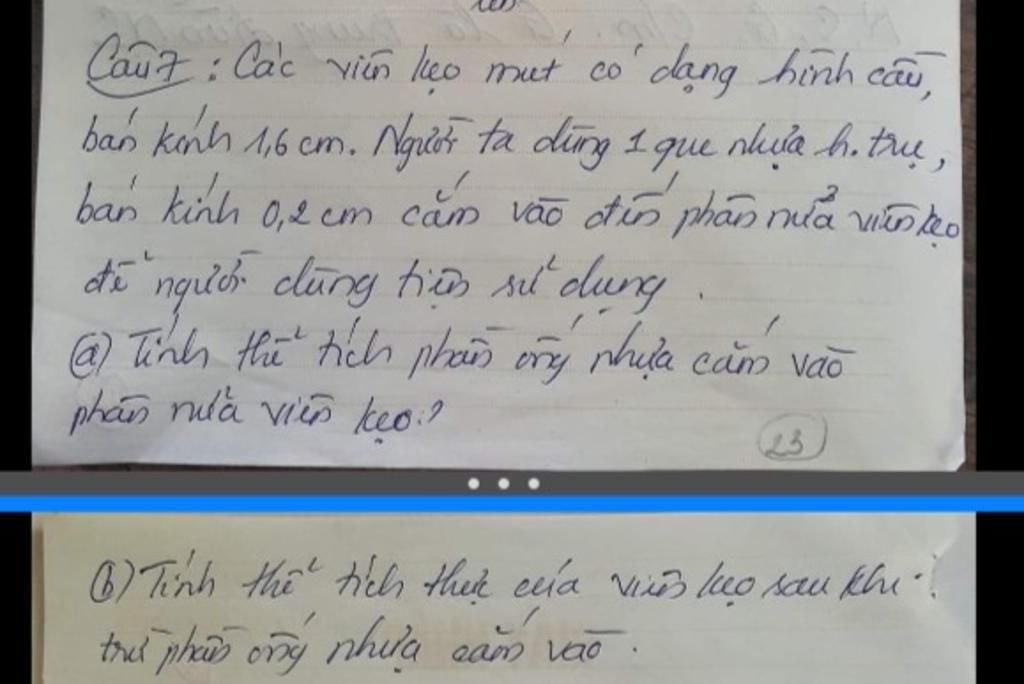 Câu 7: Các viên kẹo mút có dạng hình cầu,
bán kính 1,6 cm. Người ta dùng 1 que nhựa h. trụ,
bán kính 0,2 cm cắm vào đến phân nửa viên kẹo
để người dùng tiện sử dụng.
(a) Tính thể tích phần ống nhựa cắm vào
phân nửa viên kẹo?
23
(b) Tính thể tích thực của viên kẹo sau khi
trừ phần ống nhựa cắm vào.